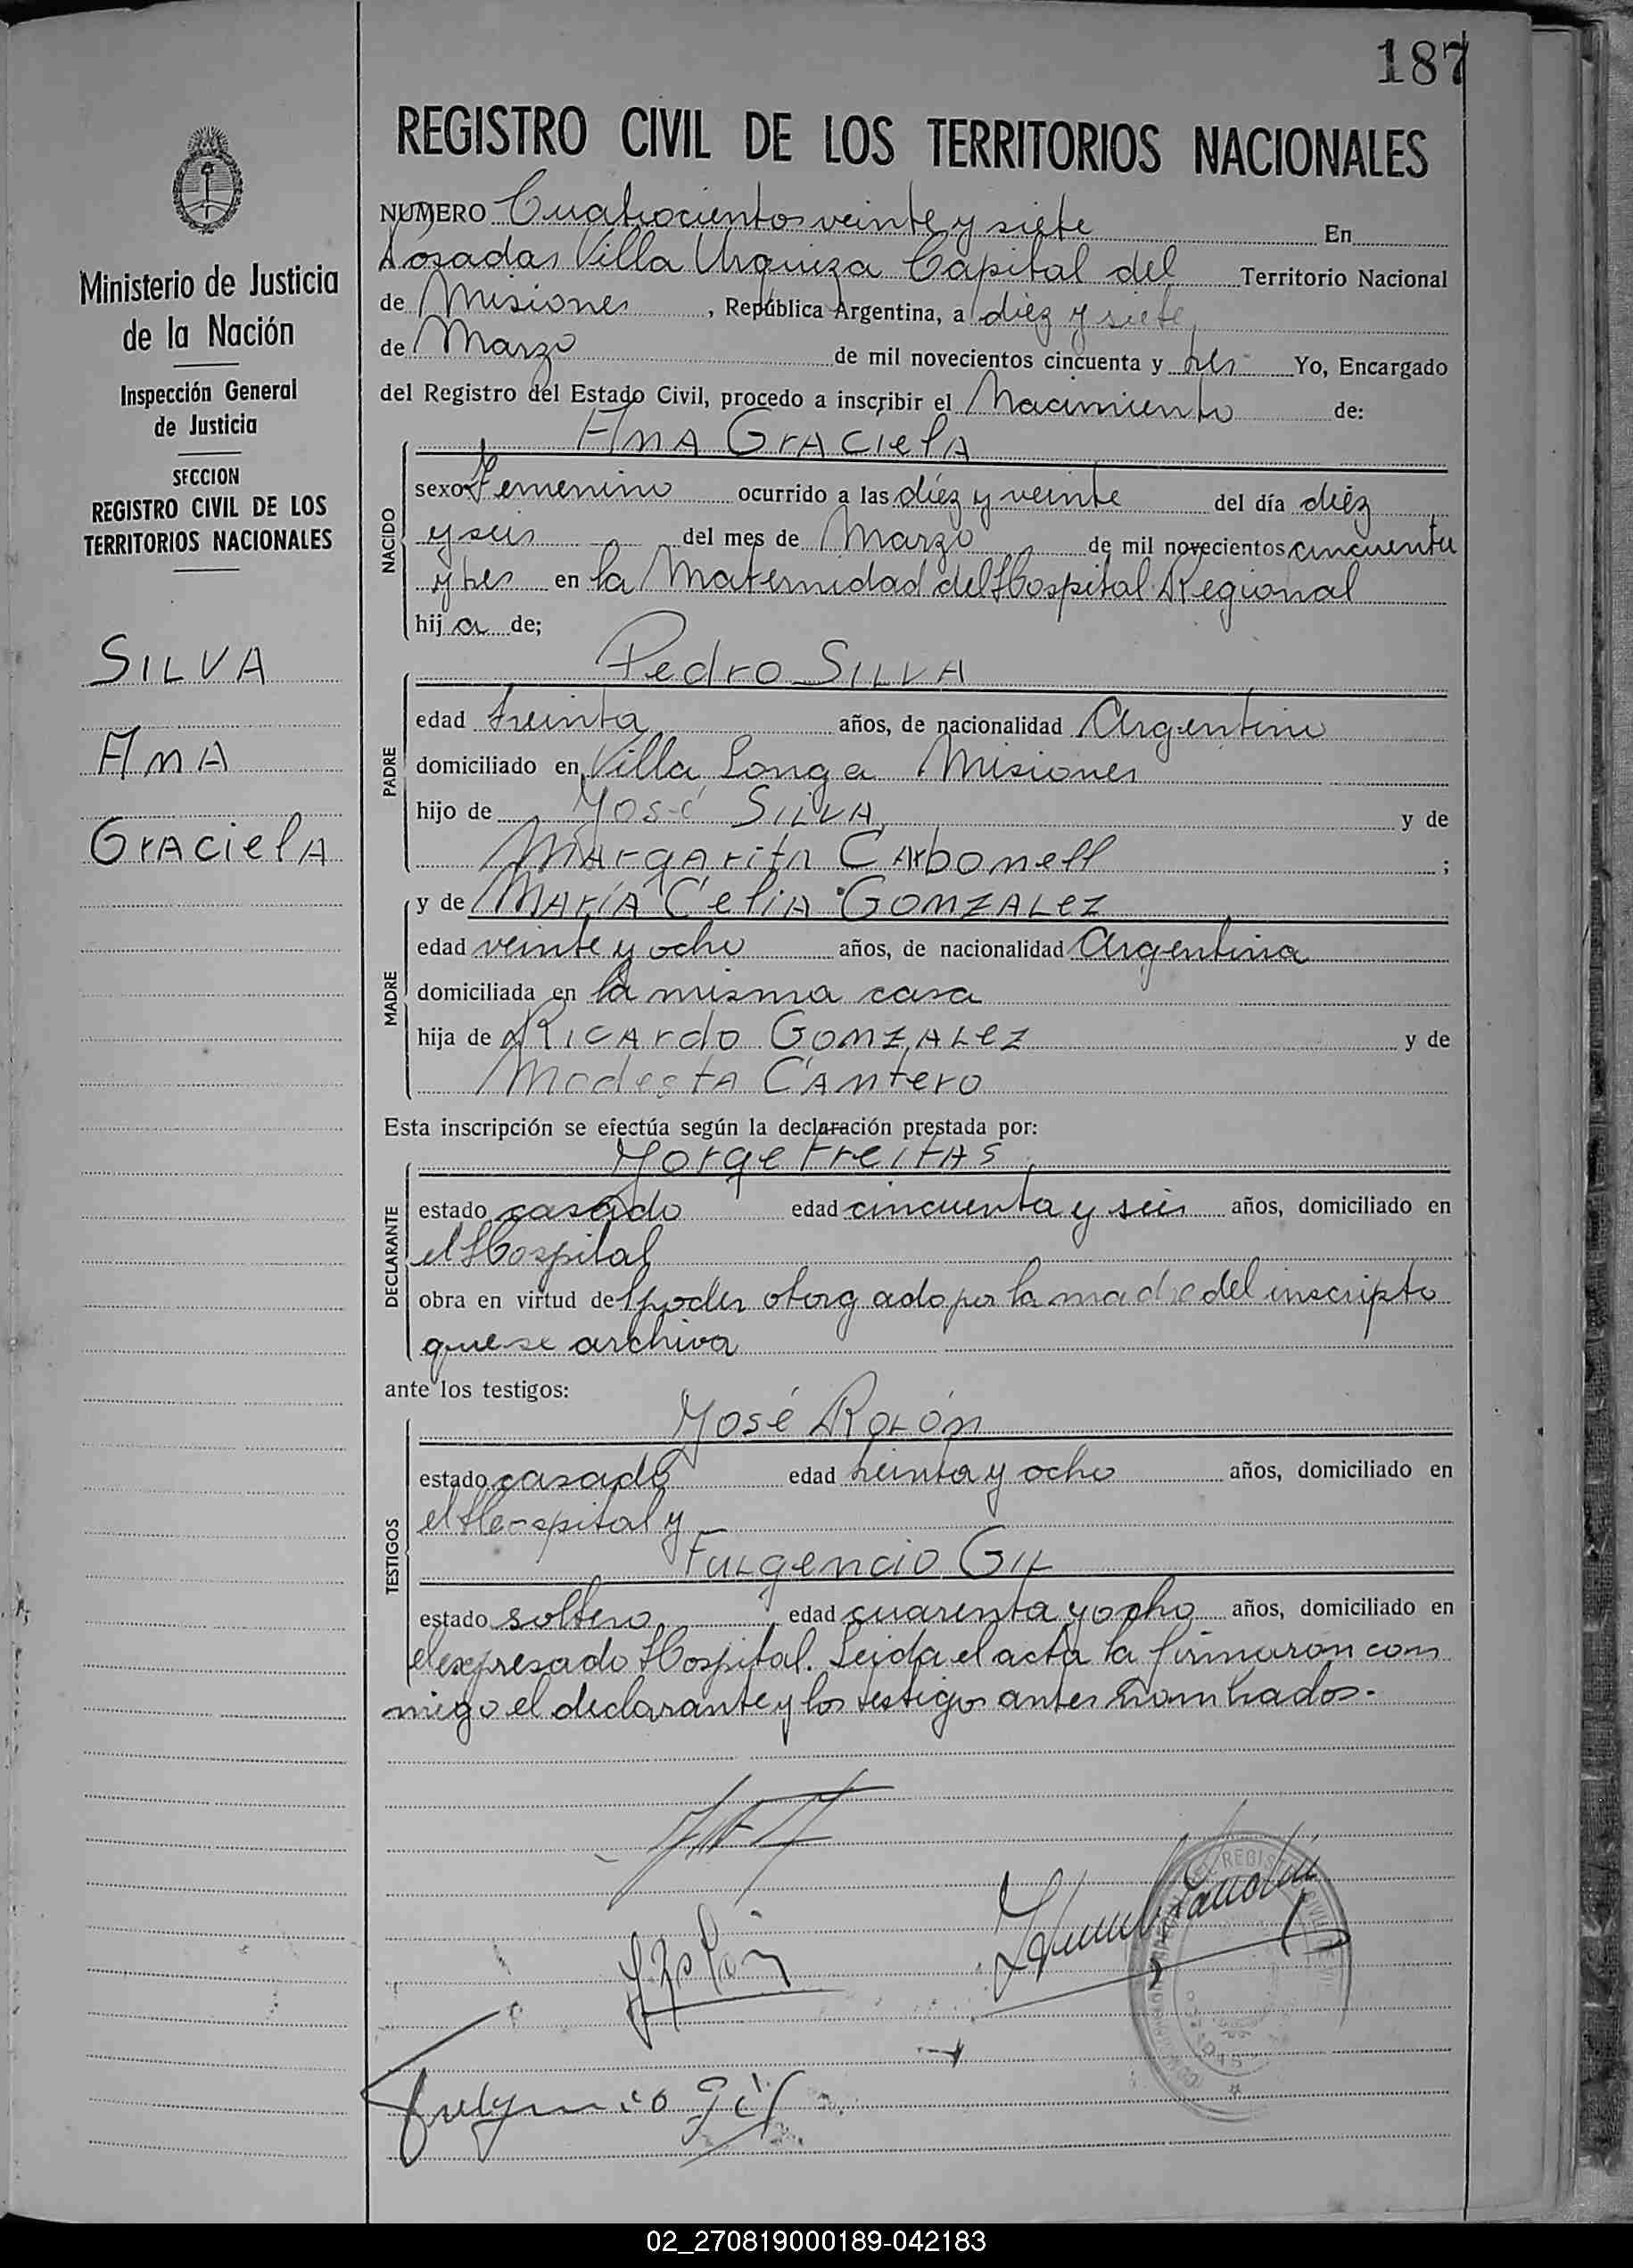 187
REGISTRO CIVIL DE LOS TERRITORIOS NACIONALES
Ministerio de Justicia
de la Nación
Inspección General
de Justicia
SECCION
REGISTRO CIVIL DE LOS
TERRITORIOS NACIONALES
SILVA
AnA
GrAcielA
NUMERO Cuatrocientos veinte y siete En
Posadas Villa Urquiza Capital del Territorio Nacional
de Misiones, República Argentina, a diéz y siete
de Marzo de mil novecientos cincuenta y tres Yo, Encargado
del Registro del Estado Civil, procedo a inscribir el Nacimiento de:
AnA GrAcielA
NACIDO
sexo Femenino ocurrido a las diéz y veinte del día diéz
y seis del mes de Marzo de mil novecientos cincuenta
y tres en la Maternidad del Hospital Regional
hij a de;
Pedro SILVA
PADRE
edad treinta años, de nacionalidad Argentino
domiciliado en Villa Longa Misiones
hijo de José SILVA y de
MArgAritA CArbonell ;
y de MAríA CeliA GONZALEZ
MADRE
edad veinte y ocho años, de nacionalidad Argentina
domiciliada en la misma casa
hija de RICArdo GONZALEZ y de
ModestA CAntero
Esta inscripción se efectúa según la declaración prestada por:
Jorge FreitAs
DECLARANTE
estado casado edad cincuenta y seis años, domiciliado en
el Hospital
obra en virtud del poder otorgado por la madre del inscripto
que se archiva
ante los testigos:
José ROLÓn
TESTIGOS
estado casado edad treinta y ocho años, domiciliado en
el Hospital y
FuLgencio GIL
estado soltero edad cuarenta y ocho años, domiciliado en
el expresado Hospital. Leida el acta la firmaron con
migo el declarante y los testigos antes nombrados.-
Fulgencio Gil
02_270819000189-042183